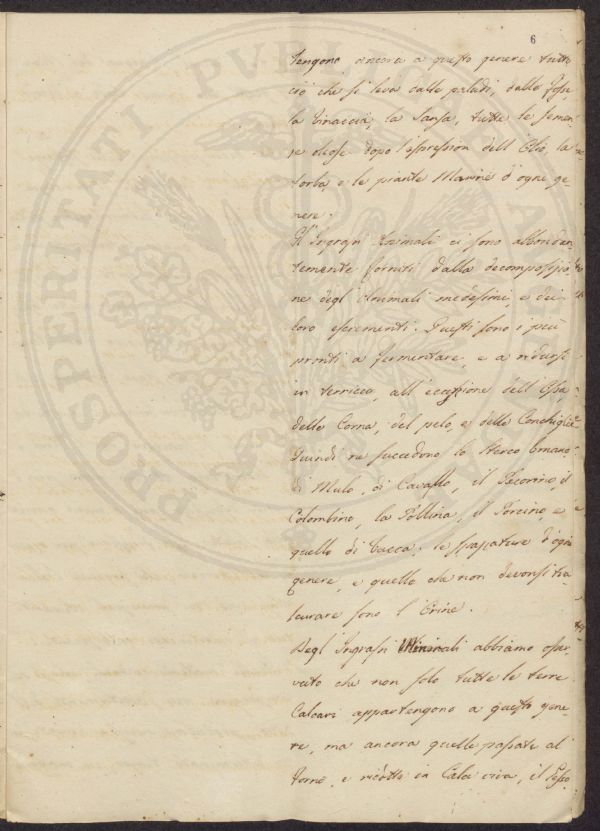 6
tengono ancora a questo genere tutto
ciò che si leva dalle paludi, dalle fosse
la Vinaccia, la Sansa, tutte le semen-
ze oleose dopo l'espression dell'Olio la
torba, e le piante Marine d'ogni ge-
nere.
Gl'Ingrassi Animali ci sono abbondan-
temente forniti dalla decomposizio-
ne degl'Animali medesimi, e dei
loro escrementi. Questi sono i più
pronti a fermentare, e a ridursi
in terriccio, all'eccezione dell'Ossa
delle Corna, del pelo, e delle Conchiglie
Quindi ne succedono lo Sterco Umano
di Mulo, di Cavallo, il Pecorino, il
Colombino, la Pollina, il Porcino, e
quello di Vacca. le spazzature d'ogni
genere, e quello che non devonsi tra-
scurare sono l'Orine.
Degl'Ingrassi Minerali abbiamo osser-
vato che non solo tutte le terre
Calcari appartengono a questo gene-
re, ma ancora quelle passate al
forno, e ridotte in Calce viva, il Gesso
PROSPERITATI PVBLICAE